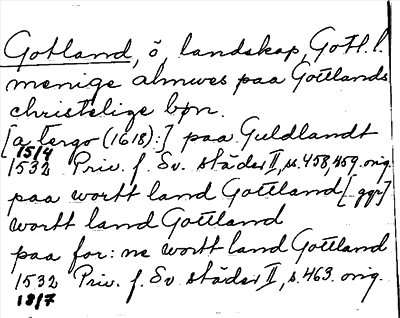 Gotland, ö, landskap, Gotl. l.
menige almwes paa Gotlands
christelige bøn.
[a tergo (1618):] paa Guldlandt
15/4
1532 Priv. f. Sv. städer II, s. 458, 459. orig.
paa wortt land Gotland [-ggr]
wortt land Gotland
paa for: ne wortt land Gotland
1532 Priv. f. Sv städer II, s. 463. orig.
18/7